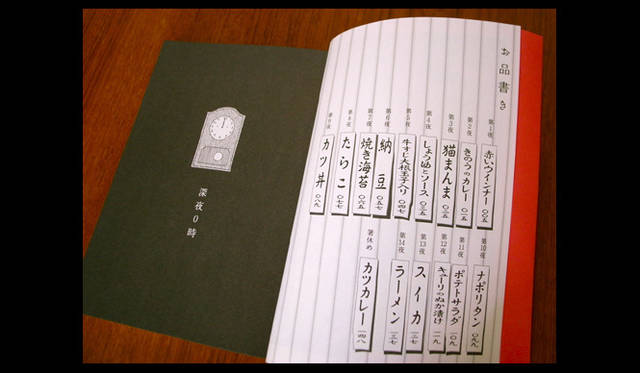 深夜0時
お品書き
第1夜
赤いウインナー
〇〇五
第2夜
きのうのカレー
〇一五
第3夜
猫まんま
〇二五
第4夜
しょうゆとソース
〇三五
第5夜
牛すじ大根玉子入り
〇四七
第6夜
納豆
〇五七
第7夜
焼き海苔
〇六五
第8夜
たらこ
〇七七
第9夜
カツ丼
〇八九
第10夜
ナポリタン
〇九九
第11夜
ポテトサラダ
一〇九
第12夜
キューリのぬか漬け
一一九
第13夜
スイカ
一二七
第14夜
ラーメン
一三七
箸休め
カツカレー
一四八